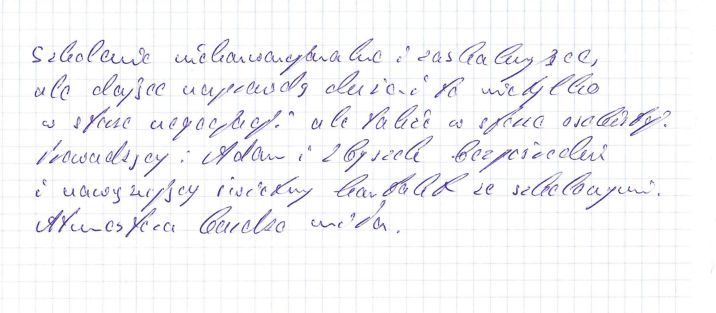 Szkolenie niekonwencjonalne i zaskakujące,
ale dające naprawdę dużo i to nie tylko
w sferze negocjacji ale także w sferze osobistej.
Prowadzący: Adam i Zbyszek bezpośredni
i nawiązujący świetny kontakt ze szkolonymi.
Atmosfera bardzo miła.